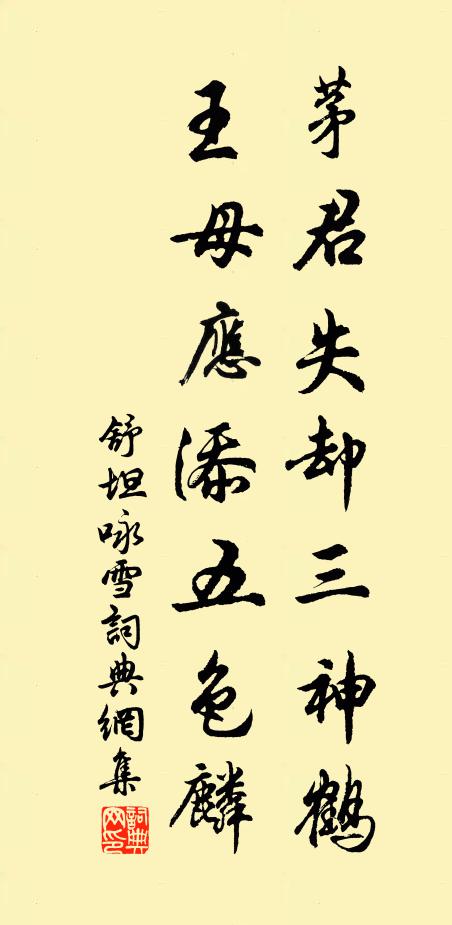 茅君失却三神鶴
王母應添五色麟
舒坦咏雪詞典網集
詞典網印